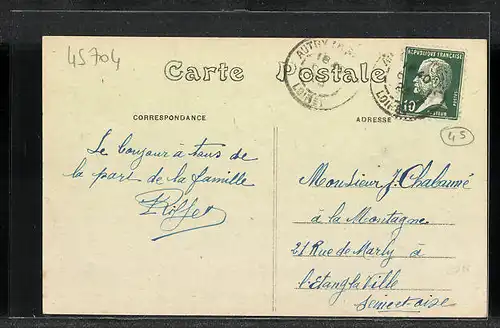 45704
Carte Postale
CORRESPONDANCE
ADRESSE
Le bonjour à tous de
la part de la famille
AUTRY
18
LOIRET
REPUBLIQUE FRANÇAISE
10
PASTEUR
45
Monsieur J. Chabanné
à la Montagne
21 Rue de Marly à
l'Etang la Ville
Seine et Oise